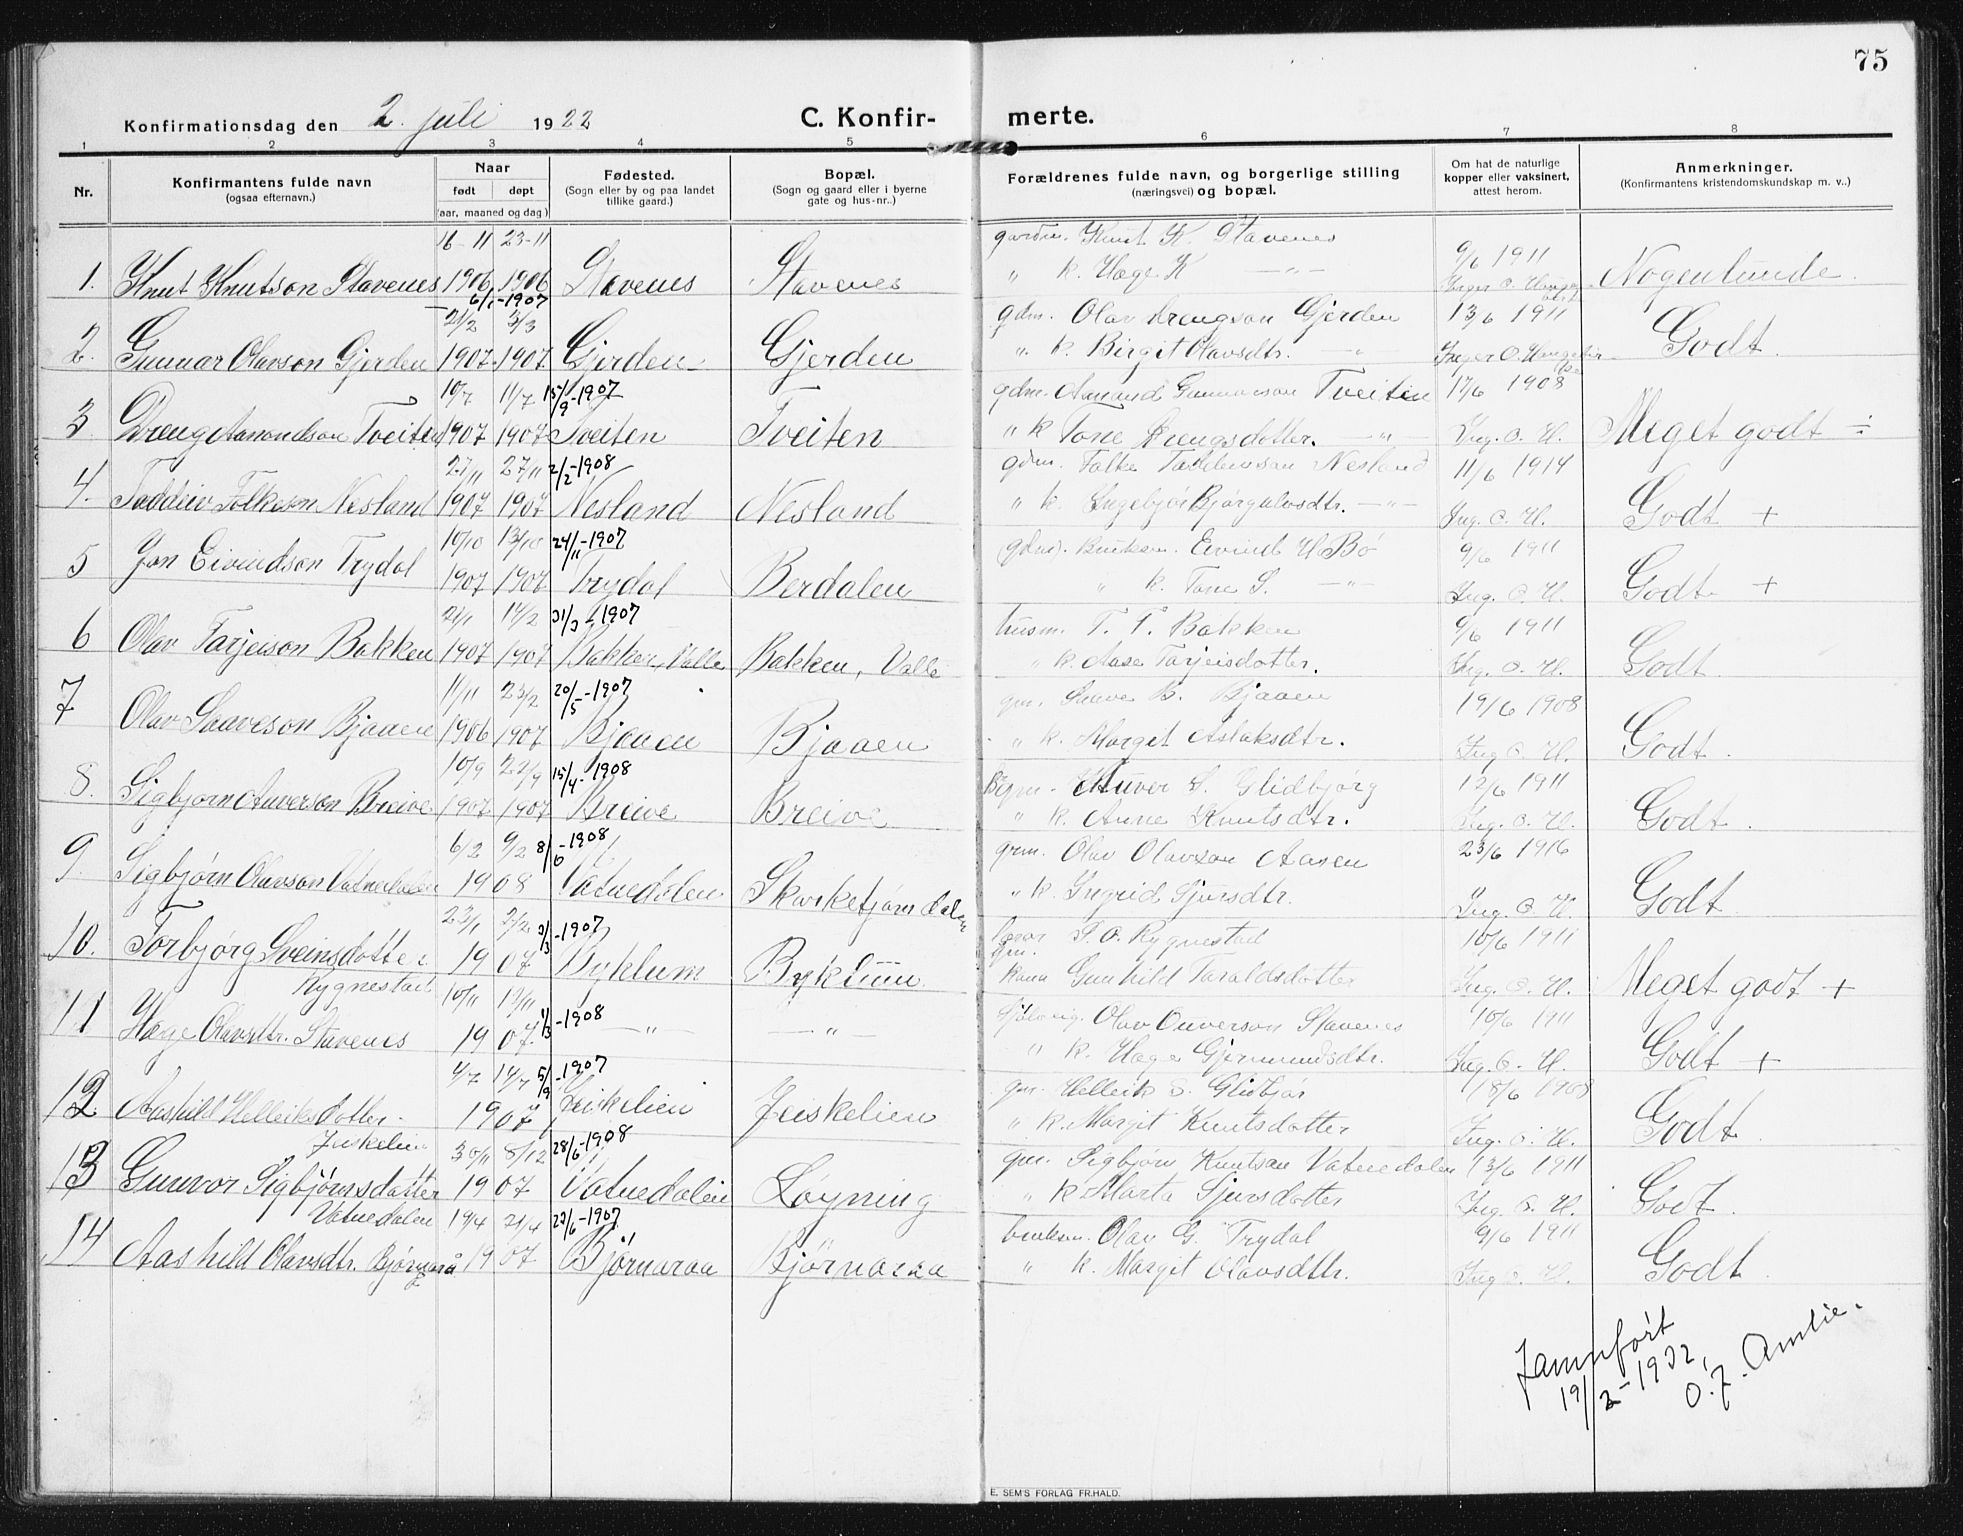 75
Konfirmationsdag den 2. juli 1922
C. Konfir-merte.
1 2 3 4 5 6 7 8
Nr.
Konfirmantens fulde navn
(ogsaa efternavn.)
Naar
født døpt
(aar, maaned og dag)
Fødested.
(Sogn eller by og paa landet
tillike gaard.)
Bopæl.
(Sogn og gaard eller i byerne
gate og hus-nr..)
Forældrenes fulde navn, og borgerlige stilling
(næringsvei) og bopæl.
Om hat de naturlige
kopper eller vaksinert,
attest herom.
Anmerkninger.
(Konfirmantens kristendomskundskap m. v..)
16-11 23-11 gardm. Knut K. Stavenes
1. Knut Knutson Stavenes 1906 1906 Stavenes Stavenes " k. Hæge K —"— 9/6 1911 Nogenlunde.
6/1-1907
21/2 3/3 gdm. Olav Drengson Gjerden 13/6 1911
2. Gunnar Olavson Gjerden 1907 1907 Gjerden Gjerden " k. Birgit Olavsdtr. —"— Godt.
10/7 11/7 15/9-1907 gdm. Aamund Gunnarson Tveiten 17/6 1908
3. Dreng Aamundson Tveiten 1907 1907 Tveiten Tveiten " k Tone Drengsdotter. —"— Ing. O. H. Meget godt ÷
27/11 27/11 2/2-1908 gdm. Folke Taddeivson Nesland 11/6 1914
4. Taddeiv Folkeson Nesland 1907 1907 Nesland Nesland " k. Ingebjør Bjørgulvsdtr. —"— Ing. O. H. Godt +
10/10 13/10 24/11-1907 Eivind H Bø 9/6 1911
5 Jon Eivindson Trydal 1907 1907 Trydal Berdalen " k. Tone S. —"— Ing. O. H. Godt +
21/1 17/2 31/3-1907 husm. T. T. Bakken 9/6 1911
6 Olav Tarjeison Bakken 1907 1907 Bakken, Valle Bakken, Valle " k. Aase Tarjeisdotter. Ing. O. H. Godt
11/11 23/2 20/5-1907 gm. Saave B. Bjaaen 19/6 1908
7 Olav Saaveson Bjaaen 1906 1907 Bjaaen Bjaaen " k. Marget Aslaksdtr. Ing. O. H. Godt.
10/9 22/9 15/4-1908 Auver S. Glidbjørg 12/6 1911
8. Sigbjørn Auverson Breive 1907 1907 Breive Breive " k. Anne Knutsdtr. Ing. O. H. Godt.
6/2 9/2 8/6-1908 grm. Olav Olavson Aasen 23/6 1916
9. Sigbjørn Olavson Vatnedalen 1908 Vatnedalen " k. Ingrid Sjursdtr. Ing. O. H. Godt
23/1 2/2 3/3-1907 S. O. Rygnestad 10/6 1911
gm.
10. Torbjørg Sveinsdotter 1907 Byklum Byklum kona Gunhild Taraldsdotter Ing. O. H. Meget godt +
Rygnestad
10/11 19/11 1/3-1908 Olav Auverson Stavenes 10/6 1911
11 Hæge Olavsdtr. Stavenes 1907 —"— —"— " k. Hæge Gjermundsdtr. Ing. O. H. Godt +
4/7 14/7 5/9-1907 gm. Helleik S. Glidbjør 18/6 1908
12 Aashild Helleiksdotter. 1907 Jeiskelien Jeiskelien " k. Margit Knutsdotter Ing. O. H. Godt
Jeiskelien
30/11 8/12 28/6-1908 gm. Sigbjørn Knutson Vatnedalen 13/6 1911
13 Gunvor Sigbjørnsdotter 1907 Vatnedalen Løyning " k Marta Sjursdotter Ing. O. H. Godt.
Vatnedalen
19/4 21/4 23/6-1907 bruksm. Olav G. Trydal 9/6 1911
14 Aashild Olavsdtr. Bjørnarå 1907 Bjørnaraa Bjørnaraa " k. Margit Olavsdtr. Ing. O. H. Godt.
Jamnført
19/2-1932,
O. J. Amlie.
E. SEM'S FORLAG FR.HALD.